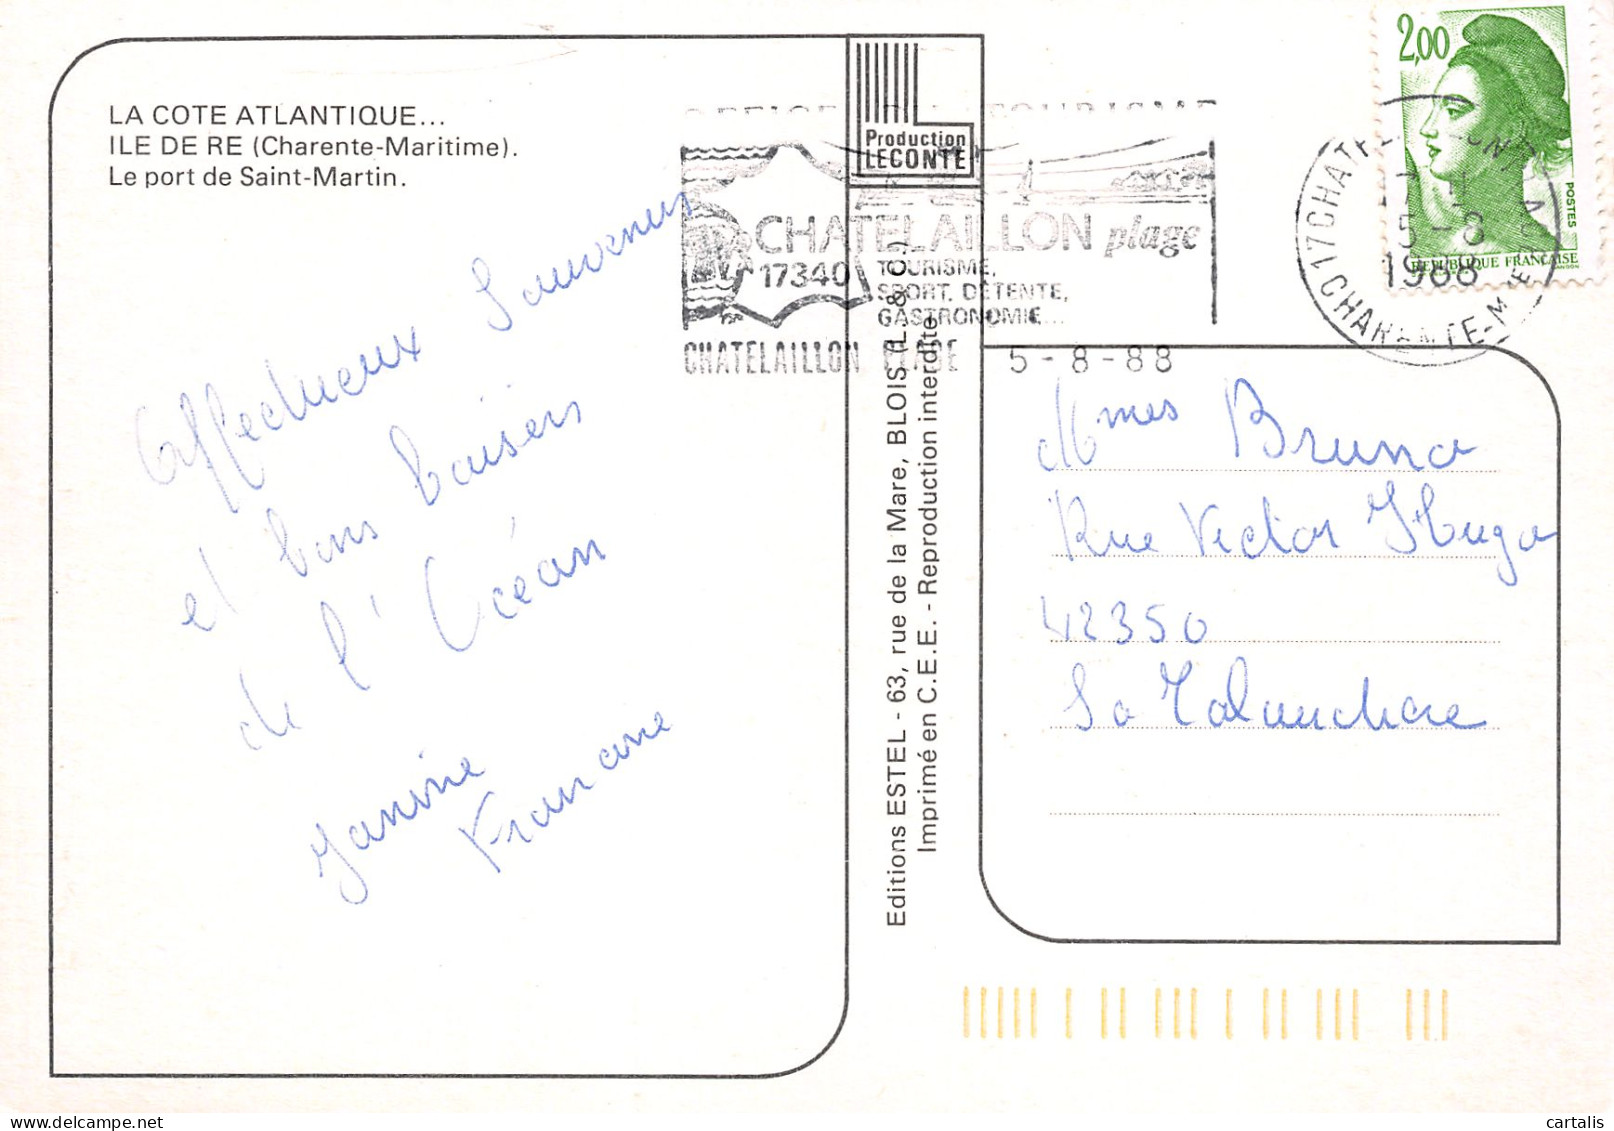 LA COTE ATLANTIQUE...
ILE DE RE (Charente-Maritime).
Le port de Saint-Martin.
Production
LECONTE
OFFICE DU TOURISME
CHATELAILLON plage
17340
TOURISME,
SPORT, DÉTENTE,
GASTRONOMIE...
CHATELAILLON PLAGE 5-8-88
2,00
POSTES
REPUBLIQUE FRANÇAISE
5-8
1988
17 CHARENTE-MME
Affectueux Souvenirs
et bons baisers
de l'Océan
Janine
Francine
Editions ESTEL - 63, rue de la Mare, BLOIS (L. & C.)
Imprimé en C.E.E. - Reproduction interdite
Mmes Bruna
Rue Victor Hugo
42350
La Talaudière
cartalis